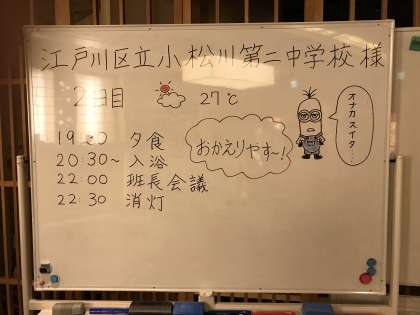 江戸川区立小松川第二中学校 様
2日目 27℃
オナカスイタ…
19:00 夕食
おかえりやす〜!
20:30~ 入浴
22:00 班長会議
22:30 消灯